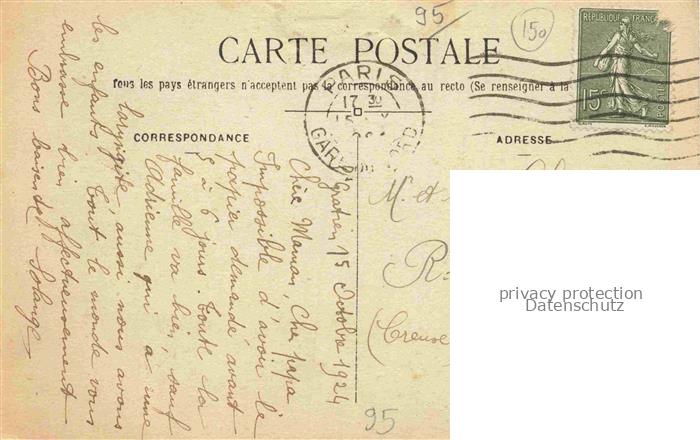 95
150
RÉPUBLIQUE FRANÇAISE
15c
POSTES
CARTE POSTALE
Tous les pays étrangers n'acceptent pas la correspondance au recto (Se renseigner à la
PARIS
17 30
GARE
CORRESPONDANCE
ADRESSE
St Gratien 15 Octobre 1924
Chère Maman, Cher papa
Impossible d'avoir le
papier demandé avant
5 à 6 jours. Toute la
famille va bien sauf
Adrienne qui a une
laryngite, aussi nous avons
les enfants. Tout le monde vous
embrasse bien affectueusement
Bons baisers de Solange
M. et
(Creuse
95
privacy protection
Datenschutz